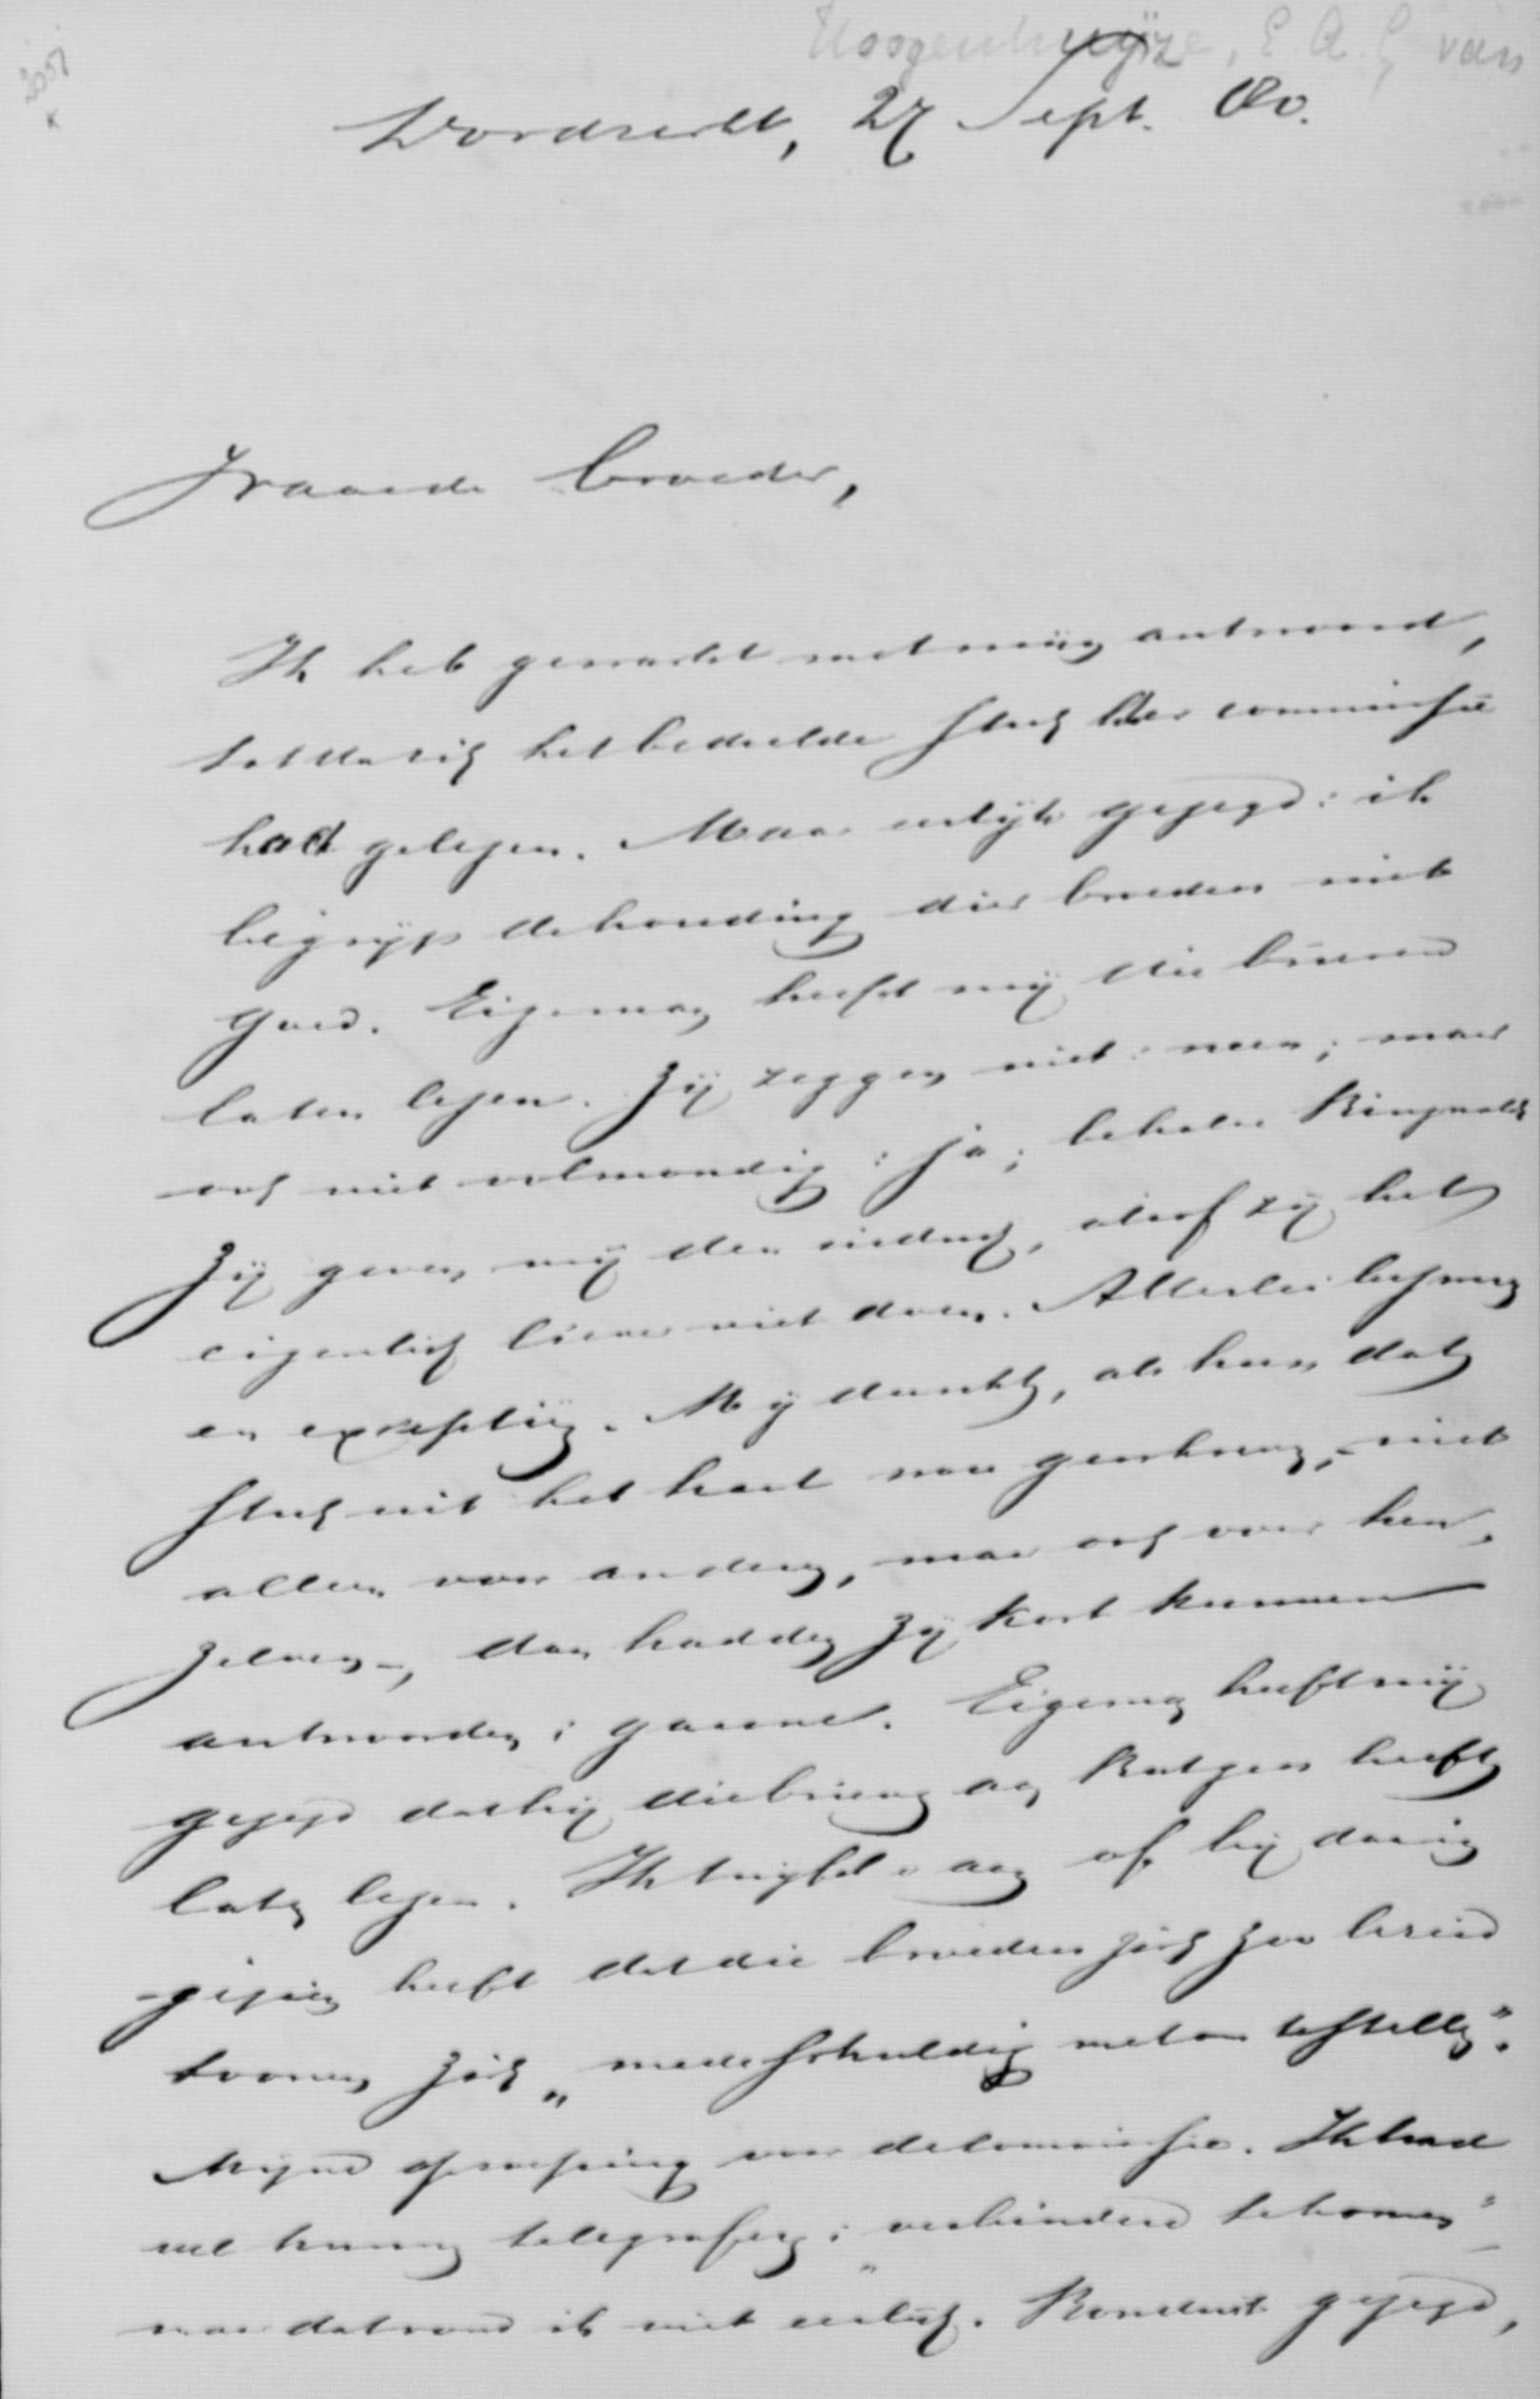 Hoogenhuyze, E A G van
2051
Dordrecht, 27 Sept. 80.
Waarde broeder,
Ik heb gewacht met mijn antwoord,
totdat ik het bedoelde stuk der commissie
had gelezen. Maar eerlijk gezegd: ik
begrijp de houding dier broeders niet
goed. Eigeman heeft mij die brieven
laten lezen. Zij zeggen niet: neen; maar
ook niet volmondig: ja; behalve
Zij geven mij den indruk, alsof zij het
eigenlijk liever niet doen. Allerlei
en exceptiën. Mij dunkt, als hun dat
stuk uit het hart was geschreven, - niet
alleen voor anderen, maar ook voor hen
zelven -, dan hadden zij kort kunnen
antwoorden: gaarne. Eigeman heeft mij
gezegd dat hij die brieven aan Rutgers heeft
laten lezen. Ik twijfel er aan of hij daarin
gezien heeft dat die broeders zich zoo bereid
toonen zich „medeschuldig met ons te stellen".
Mijne afwezing voor de commissie. Ik had
wel kunnen telegraferen: „verhinderd te komen"
maar dat vond ik niet eerlijk. Ronduit gezegd,